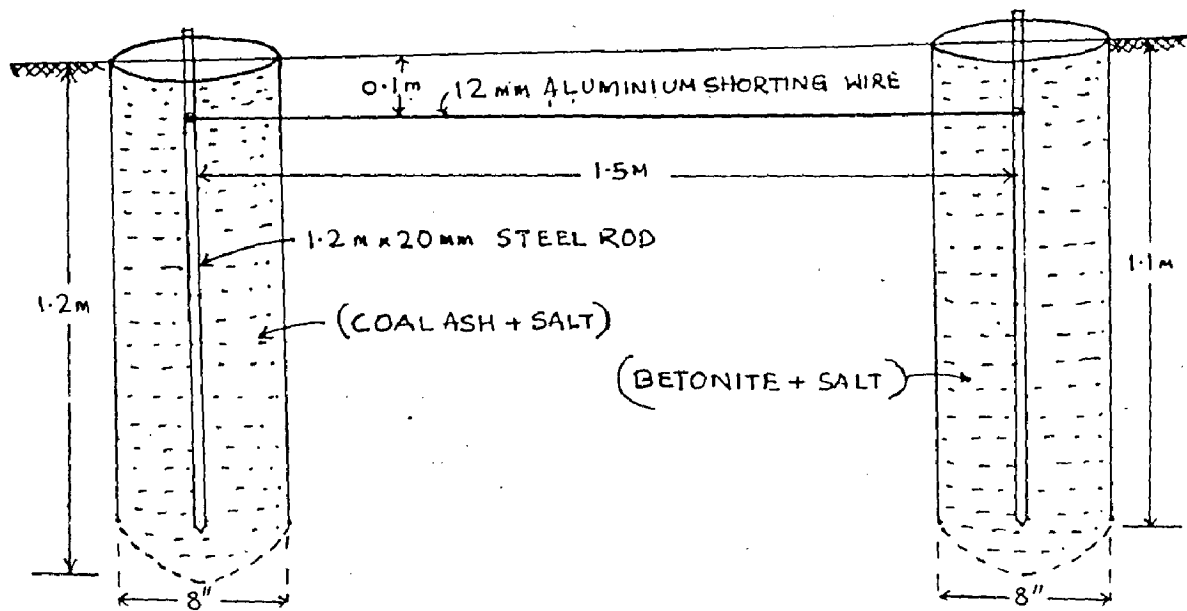 0.1m
12 mm ALUMINIUM SHORTING WIRE
1.5M
1.2 m x 20mm STEEL ROD
1.2M
1.1M
(COAL ASH + SALT)
(BETONITE + SALT)
8"
8"